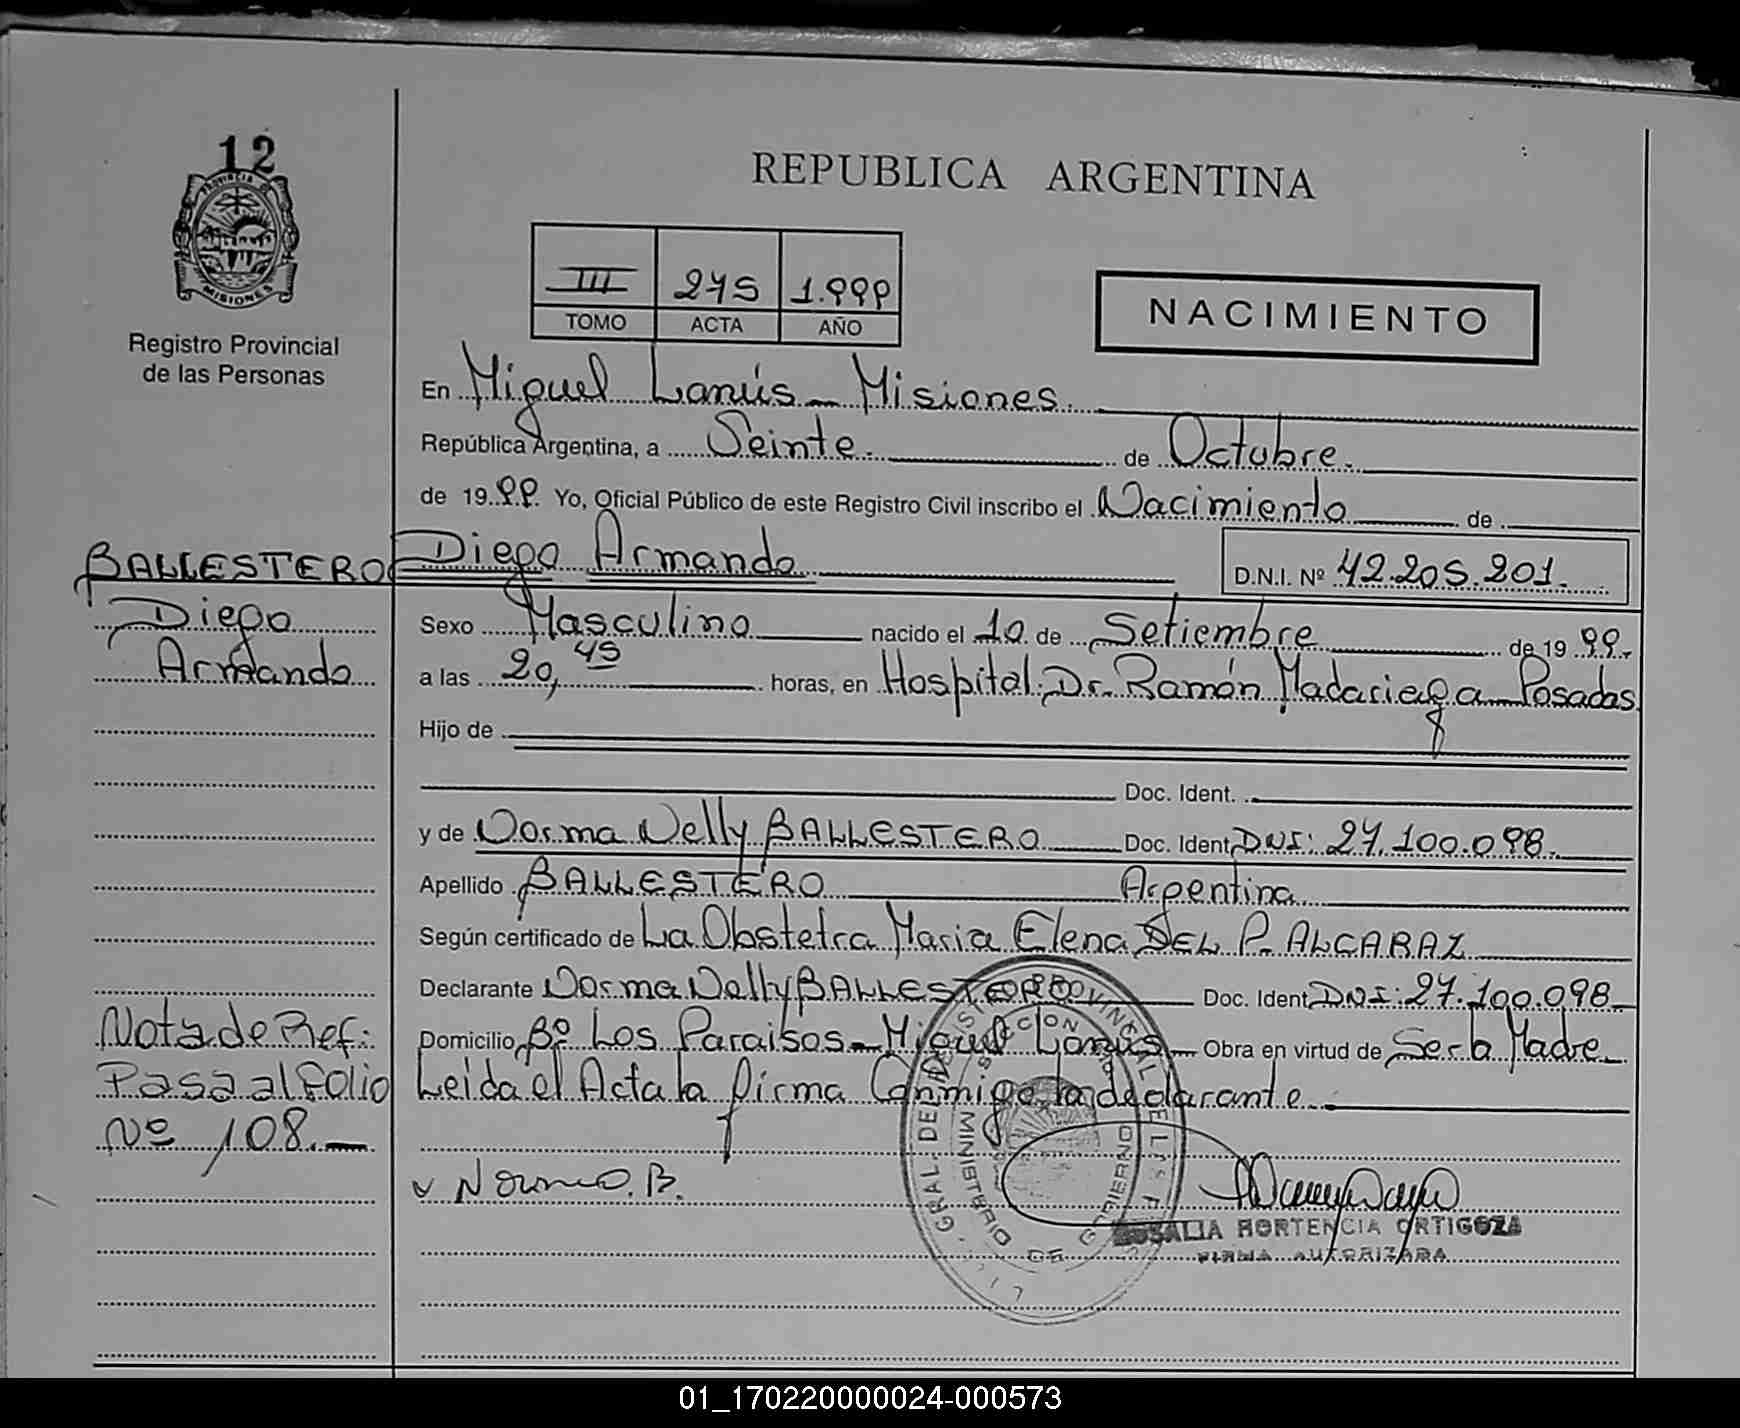 12
PROVINCIA DE
MISIONES
Registro Provincial
de las Personas
REPUBLICA ARGENTINA
III 275 1.999
TOMO ACTA AÑO
NACIMIENTO
En Miguel Lanús - Misiones.
República Argentina, a Veinte. de Octubre.
de 1999. Yo, Oficial Público de este Registro Civil inscribo el Nacimiento de
Diego Armando D.N.I. Nº 42.205.201.
Sexo Masculino nacido el 10 de Setiembre de 1999.
a las 20,45 horas, en Hospital Dr. Ramón Madariaga - Posadas
Hijo de
Doc. Ident.
y de Norma Nelly BALLESTERO Doc. Ident DNI: 27.100.098.
Apellido BALLESTERO Argentina
Según certificado de La Obstetra Maria Elena DEL P. ALCARAZ
Declarante Norma Nelly BALLESTERO Doc. Ident DNI: 27.100.098
Domicilio Bº Los Paraisos - Miguel Lanús Obra en virtud de Ser la Madre
Leida el Acta la firma Conmigo la declarante.
Norma. B.
ROSALIA HORTENCIA ORTIGOZA
FIRMA AUTORIZADA
BALLESTERO
Diego
Armando
Nota de Ref:
Pasa al Folio
Nº 108.-
MINISTERIO DE GOBIERNO
01_170220000024-000573